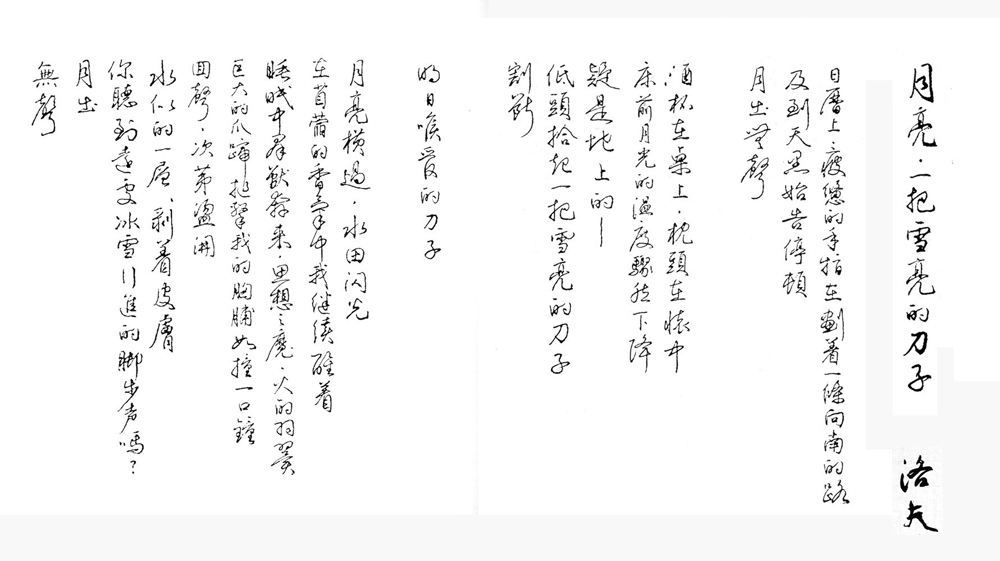 月亮·一把雪亮的刀子
洛夫
日曆上,疲憊的手指在劃着一條向南的路
及到天黑始告停頓
月出無聲
酒杯在桌上,枕頭在懷中
床前月光的溫度驟然下降
疑是地上的—
低頭拾起一把雪亮的刀子
割斷
明日喉管的刀子
月亮橫過,水田閃光
在苜蓿的香氣中我繼續醒着
睡眠中群獸奔來,思想之魔,火的羽翼
巨大的爪蹄搥擊我的胸脯如撞一口鐘
回聲,次第盪開
水似的一層層剝着皮膚
你聽到遠處冰雪行進的脚步声嗎?
月出
無聲